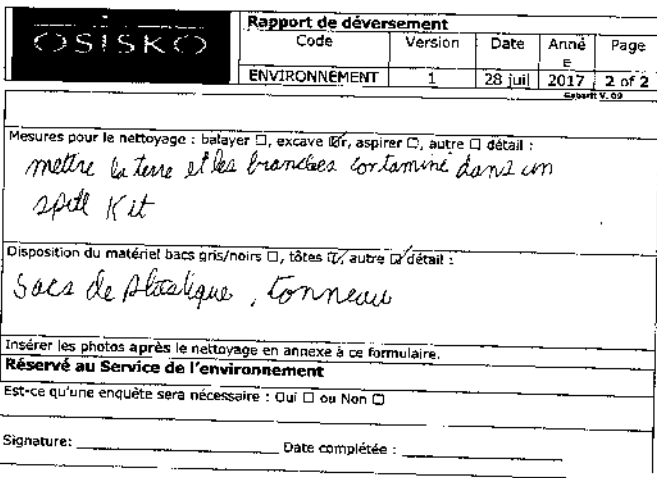 OSISKO
Rapport de déversement
Code Version Date Anné Page
E
ENVIRONNEMENT 1 28 juil 2017 2 of 2
Gabarit V. 09
Mesures pour le nettoyage : balayer ☐, excaver ☑, aspirer ☐, autre ☐ détail :
mettre la terre et les branches contaminé dans un
spill Kit
Disposition du matériel bacs gris/noirs ☐, tôtes ☑, autre ☑ détail :
Sacs de plastique, tonneau
Insérer les photos après le nettoyage en annexe à ce formulaire.
Réservé au Service de l'environnement
Est-ce qu'une enquête sera nécessaire : Oui ☐ ou Non ☐
Signature: ____________ Date complétée : ____________